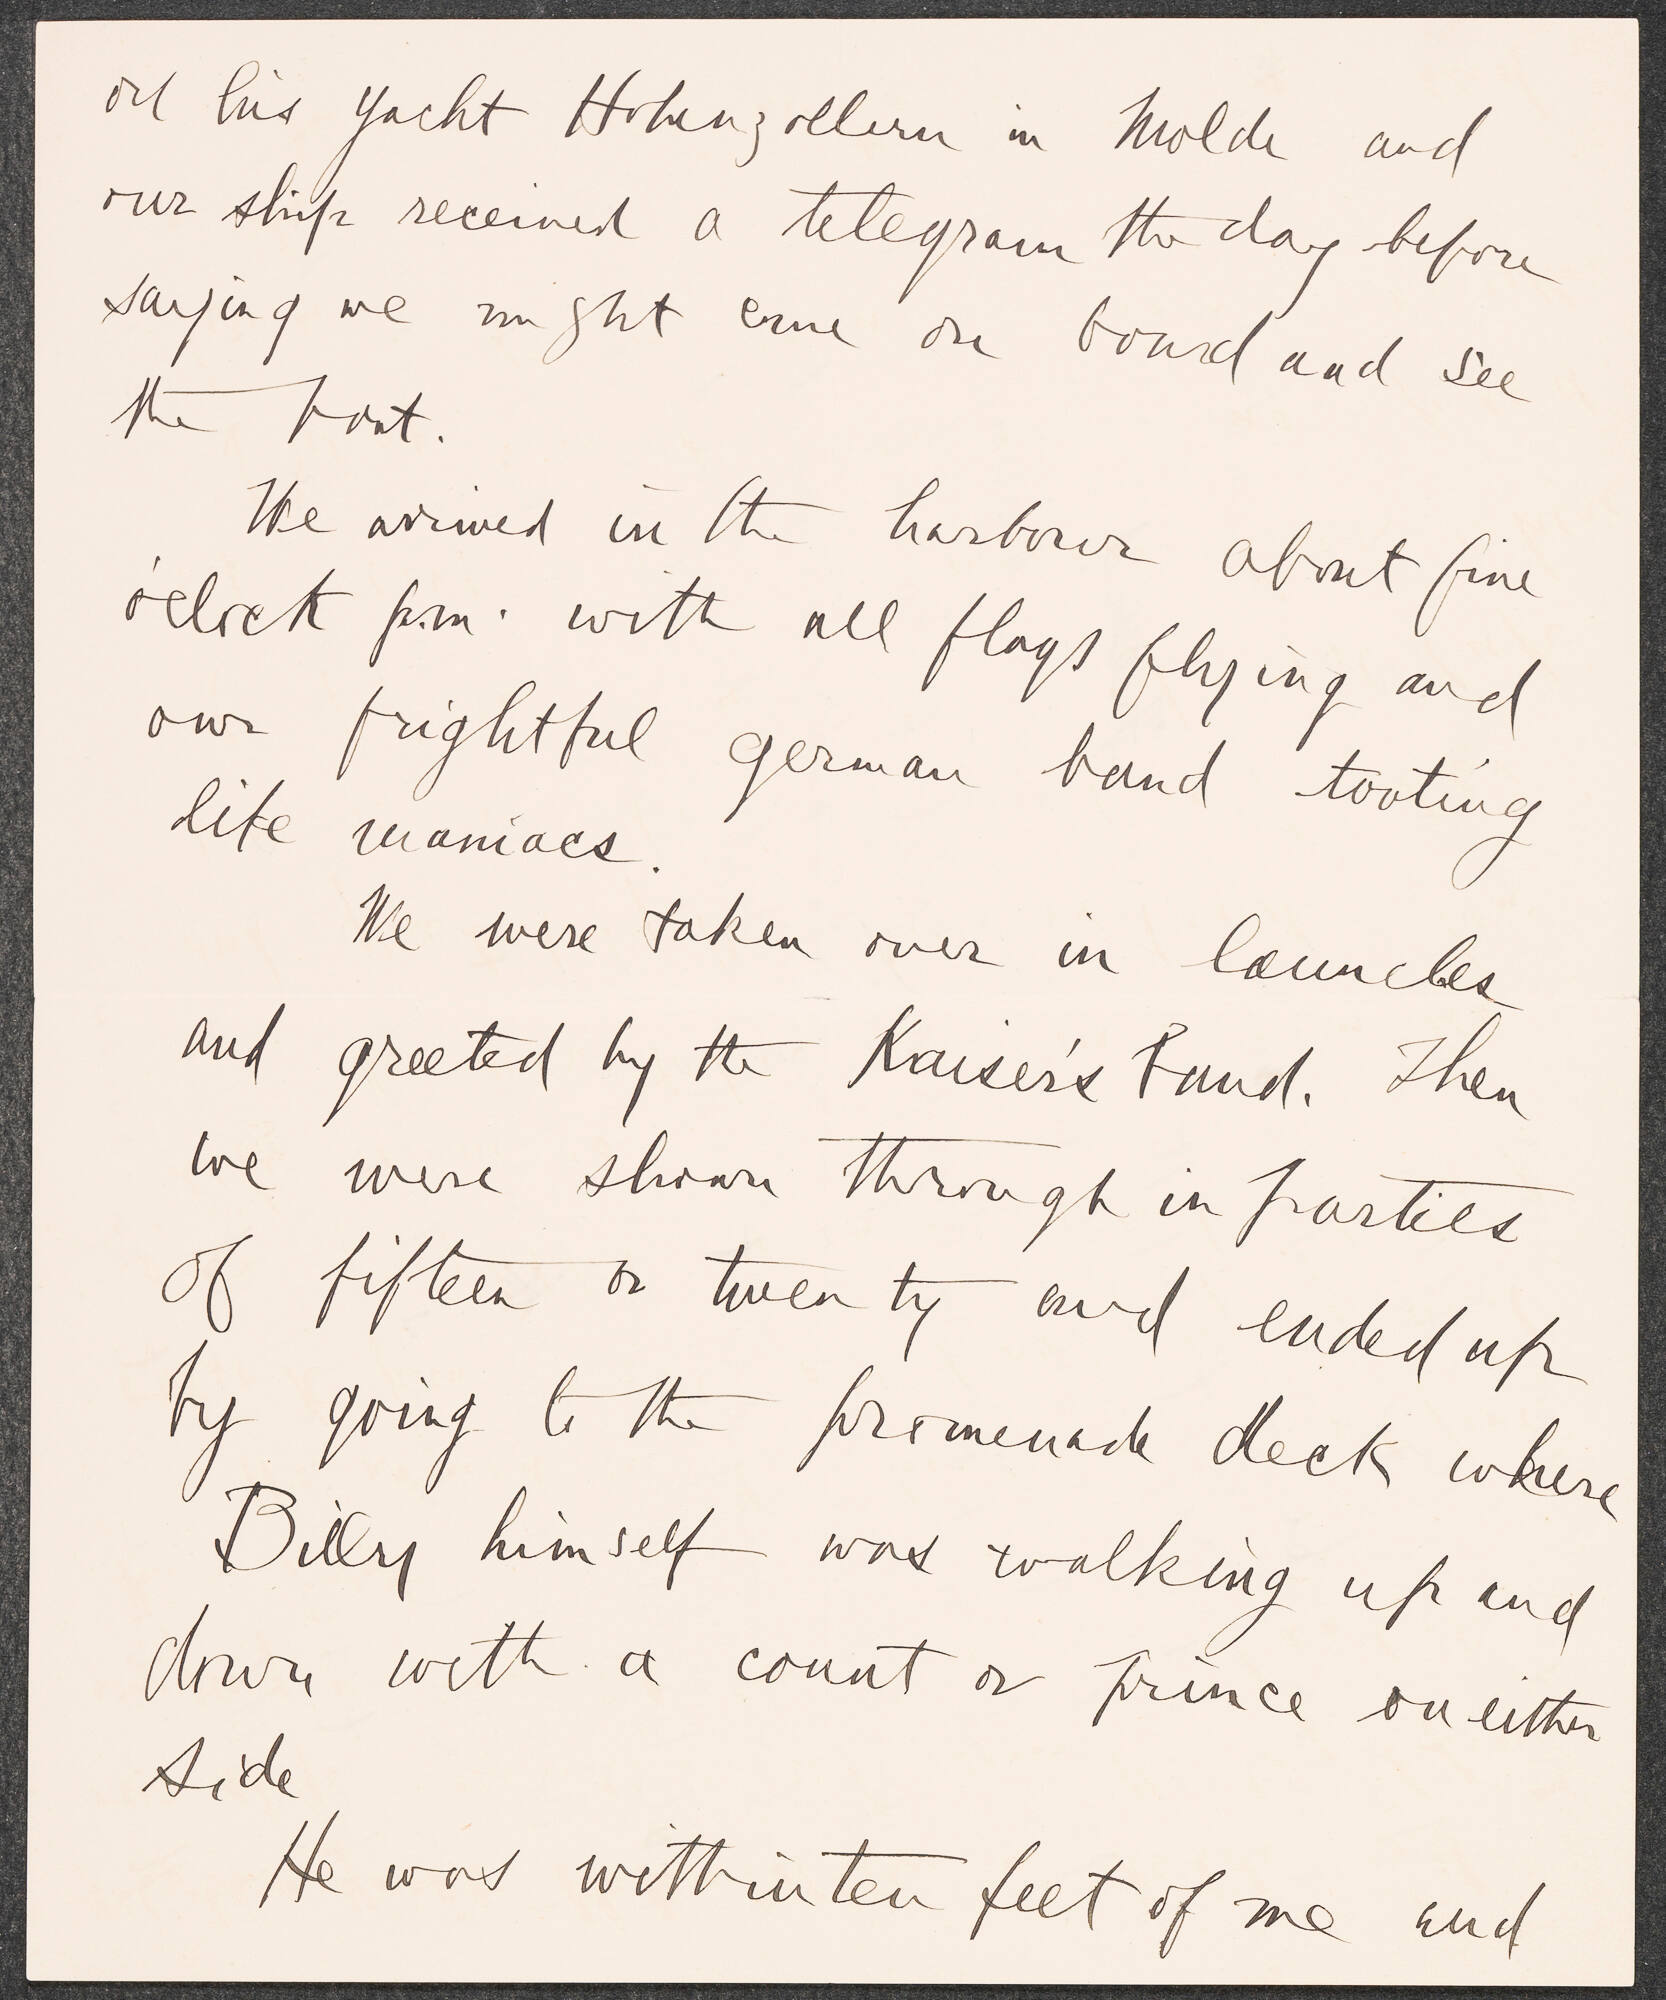 on his yacht Hohenzollern in Molde and
our ship received a telegram the day before
saying we might come on board and see
the boat.
We arrived in the harbour about five
o'clock p.m. with all flags flying and
our frightful german band tooting
like maniacs.
We were taken over in launches
and greeted by the Kaiser's band. Then
we were shown through in parties
of fifteen or twenty and ended up
by going to the promenade deck where
Billy himself was walking up and
down with a count or prince on either
side
He was within ten feet of me and